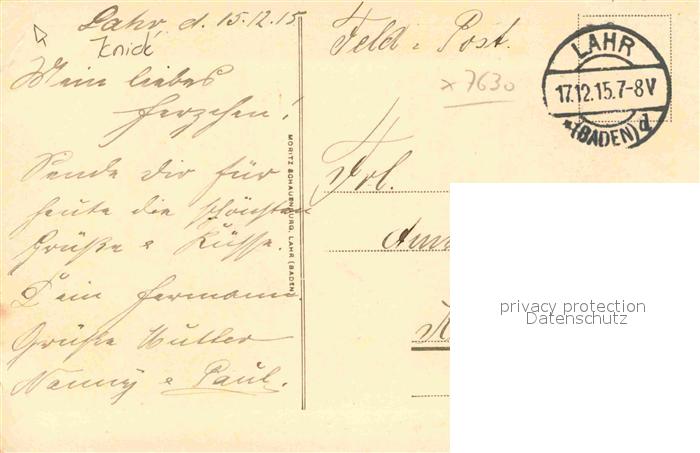 Lahr, d. 15.12.15
Knick
Mein liebes
Herzchen!
Sende dir für
heute die schönsten
Grüße & Küsse.
Dein Hermann.
Grüße Mutter
Nanny & Paul.
MORITZ SCHAUENBURG, LAHR (BADEN)
Feld-Post.
x 7630
LAHR
17.12.15.7-8V
*(BADEN)d
Frl.
privacy protection
Datenschutz